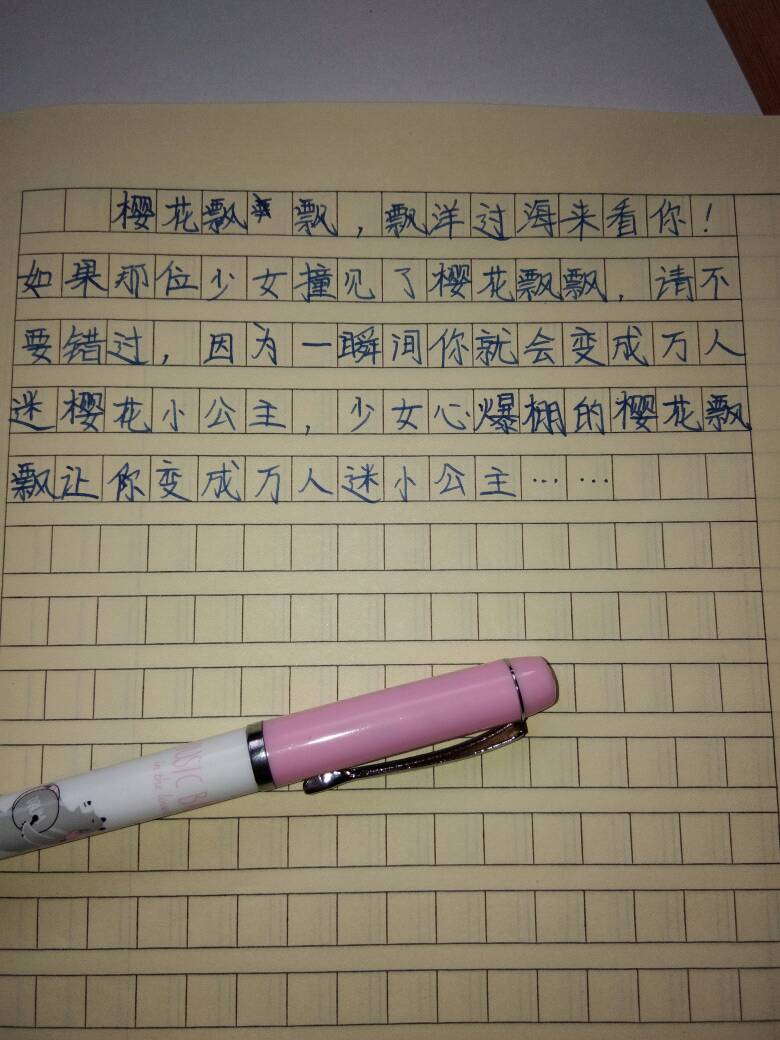 樱花飘飘，飘洋过海来看你！
如果那位少女撞见了樱花飘飘，请不
要错过，因为一瞬间你就会变成万人
迷樱花小公主，少女心爆棚的樱花飘
飘让你变成万人迷小公主……
MUSIC
in the